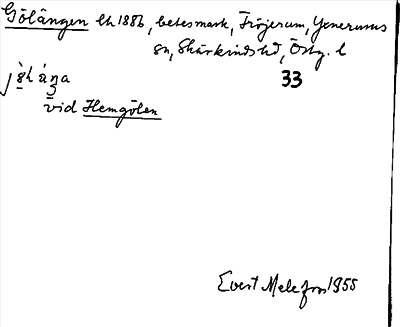 Gölängen lh 1886, betesmark, Fröjerum, Yxnerums
sn, Skärkinds hd, Östg. l
33
vid Hemgölen
Evert Melefors 1955